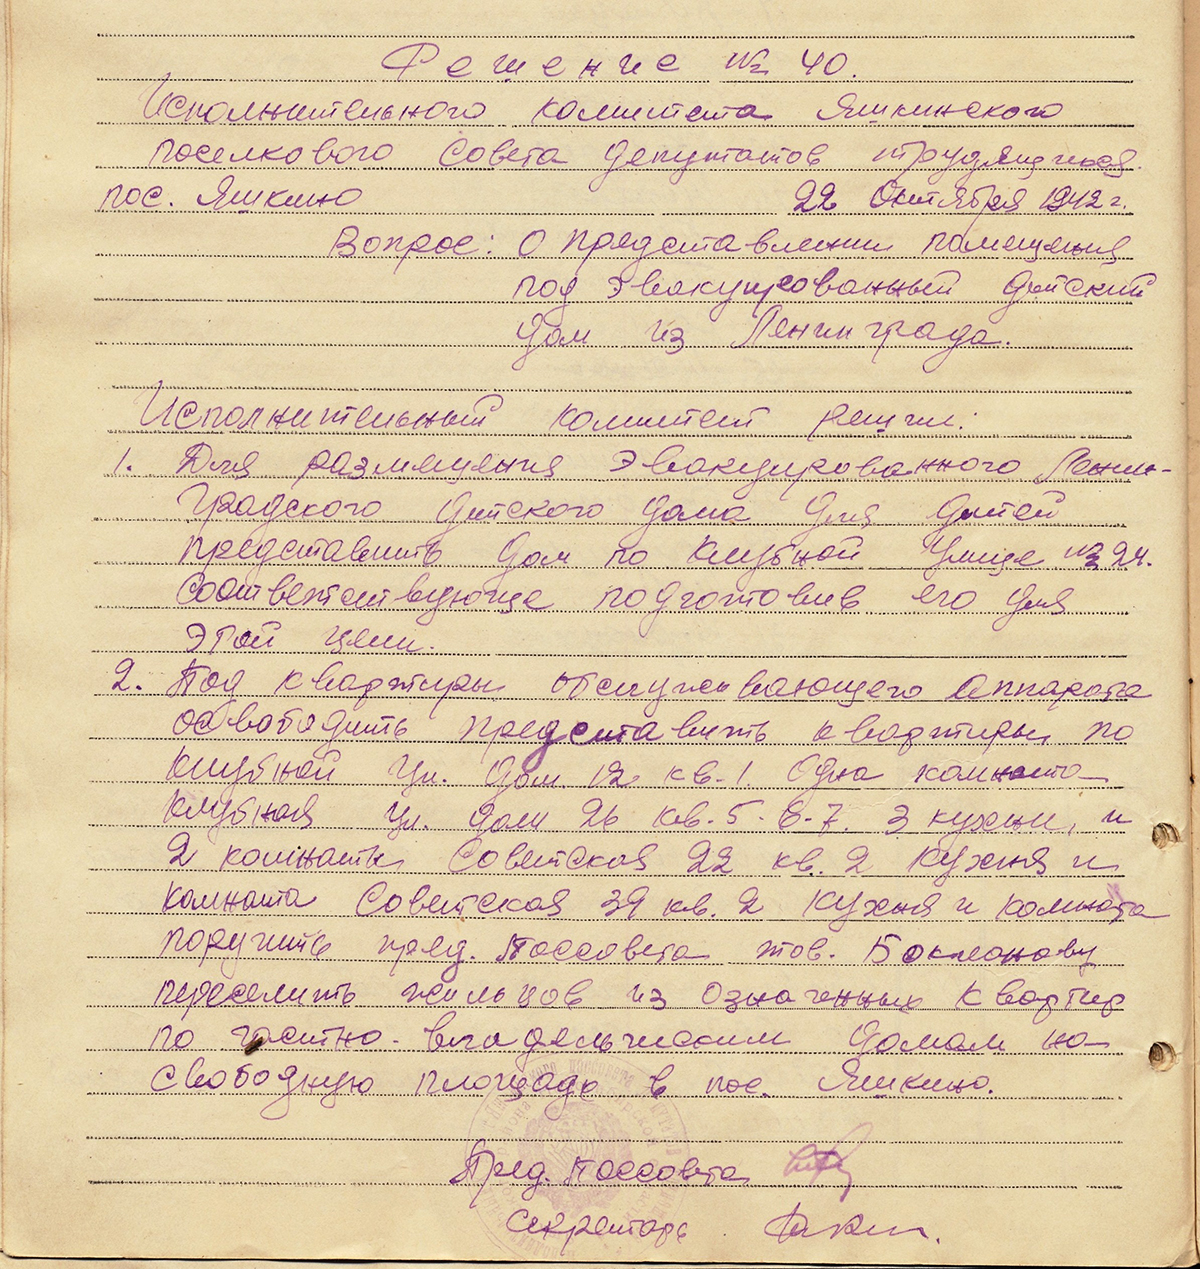 Решение № 40.
Исполнительного комитета Яшкинского
поселкового Совета депутатов трудящихся
пос. Яшкино 22 Октября 1942 г.
Вопрос: О представлении помещения
под эвакуированный детский
дом из Ленинграда.
Исполнительный комитет решил:
1. Для размещения эвакуированного Ленин-
градского детского дома для детей
представить дом по клубной улице № 24.
соответствующе подготовив его для
этой цели.
2. Под квартиры обслуживающего аппарата
освободить представить квартиры по
клубной ул. дом. 12 кв. 1. одна комната
клубная ул. дом 26 кв. 5-6-7. 3 кухни, и
2 комнаты Советская 22 кв. 2 кухня и
комната Советская 39 кв. 2 кухня и комната
поручить пред. Поссовета тов.
переселить жильцов из означенных квартир
по частно-владельческим домам на
свободную площадь в пос. Яшкино.
Пред. Поссовета
Секретарь